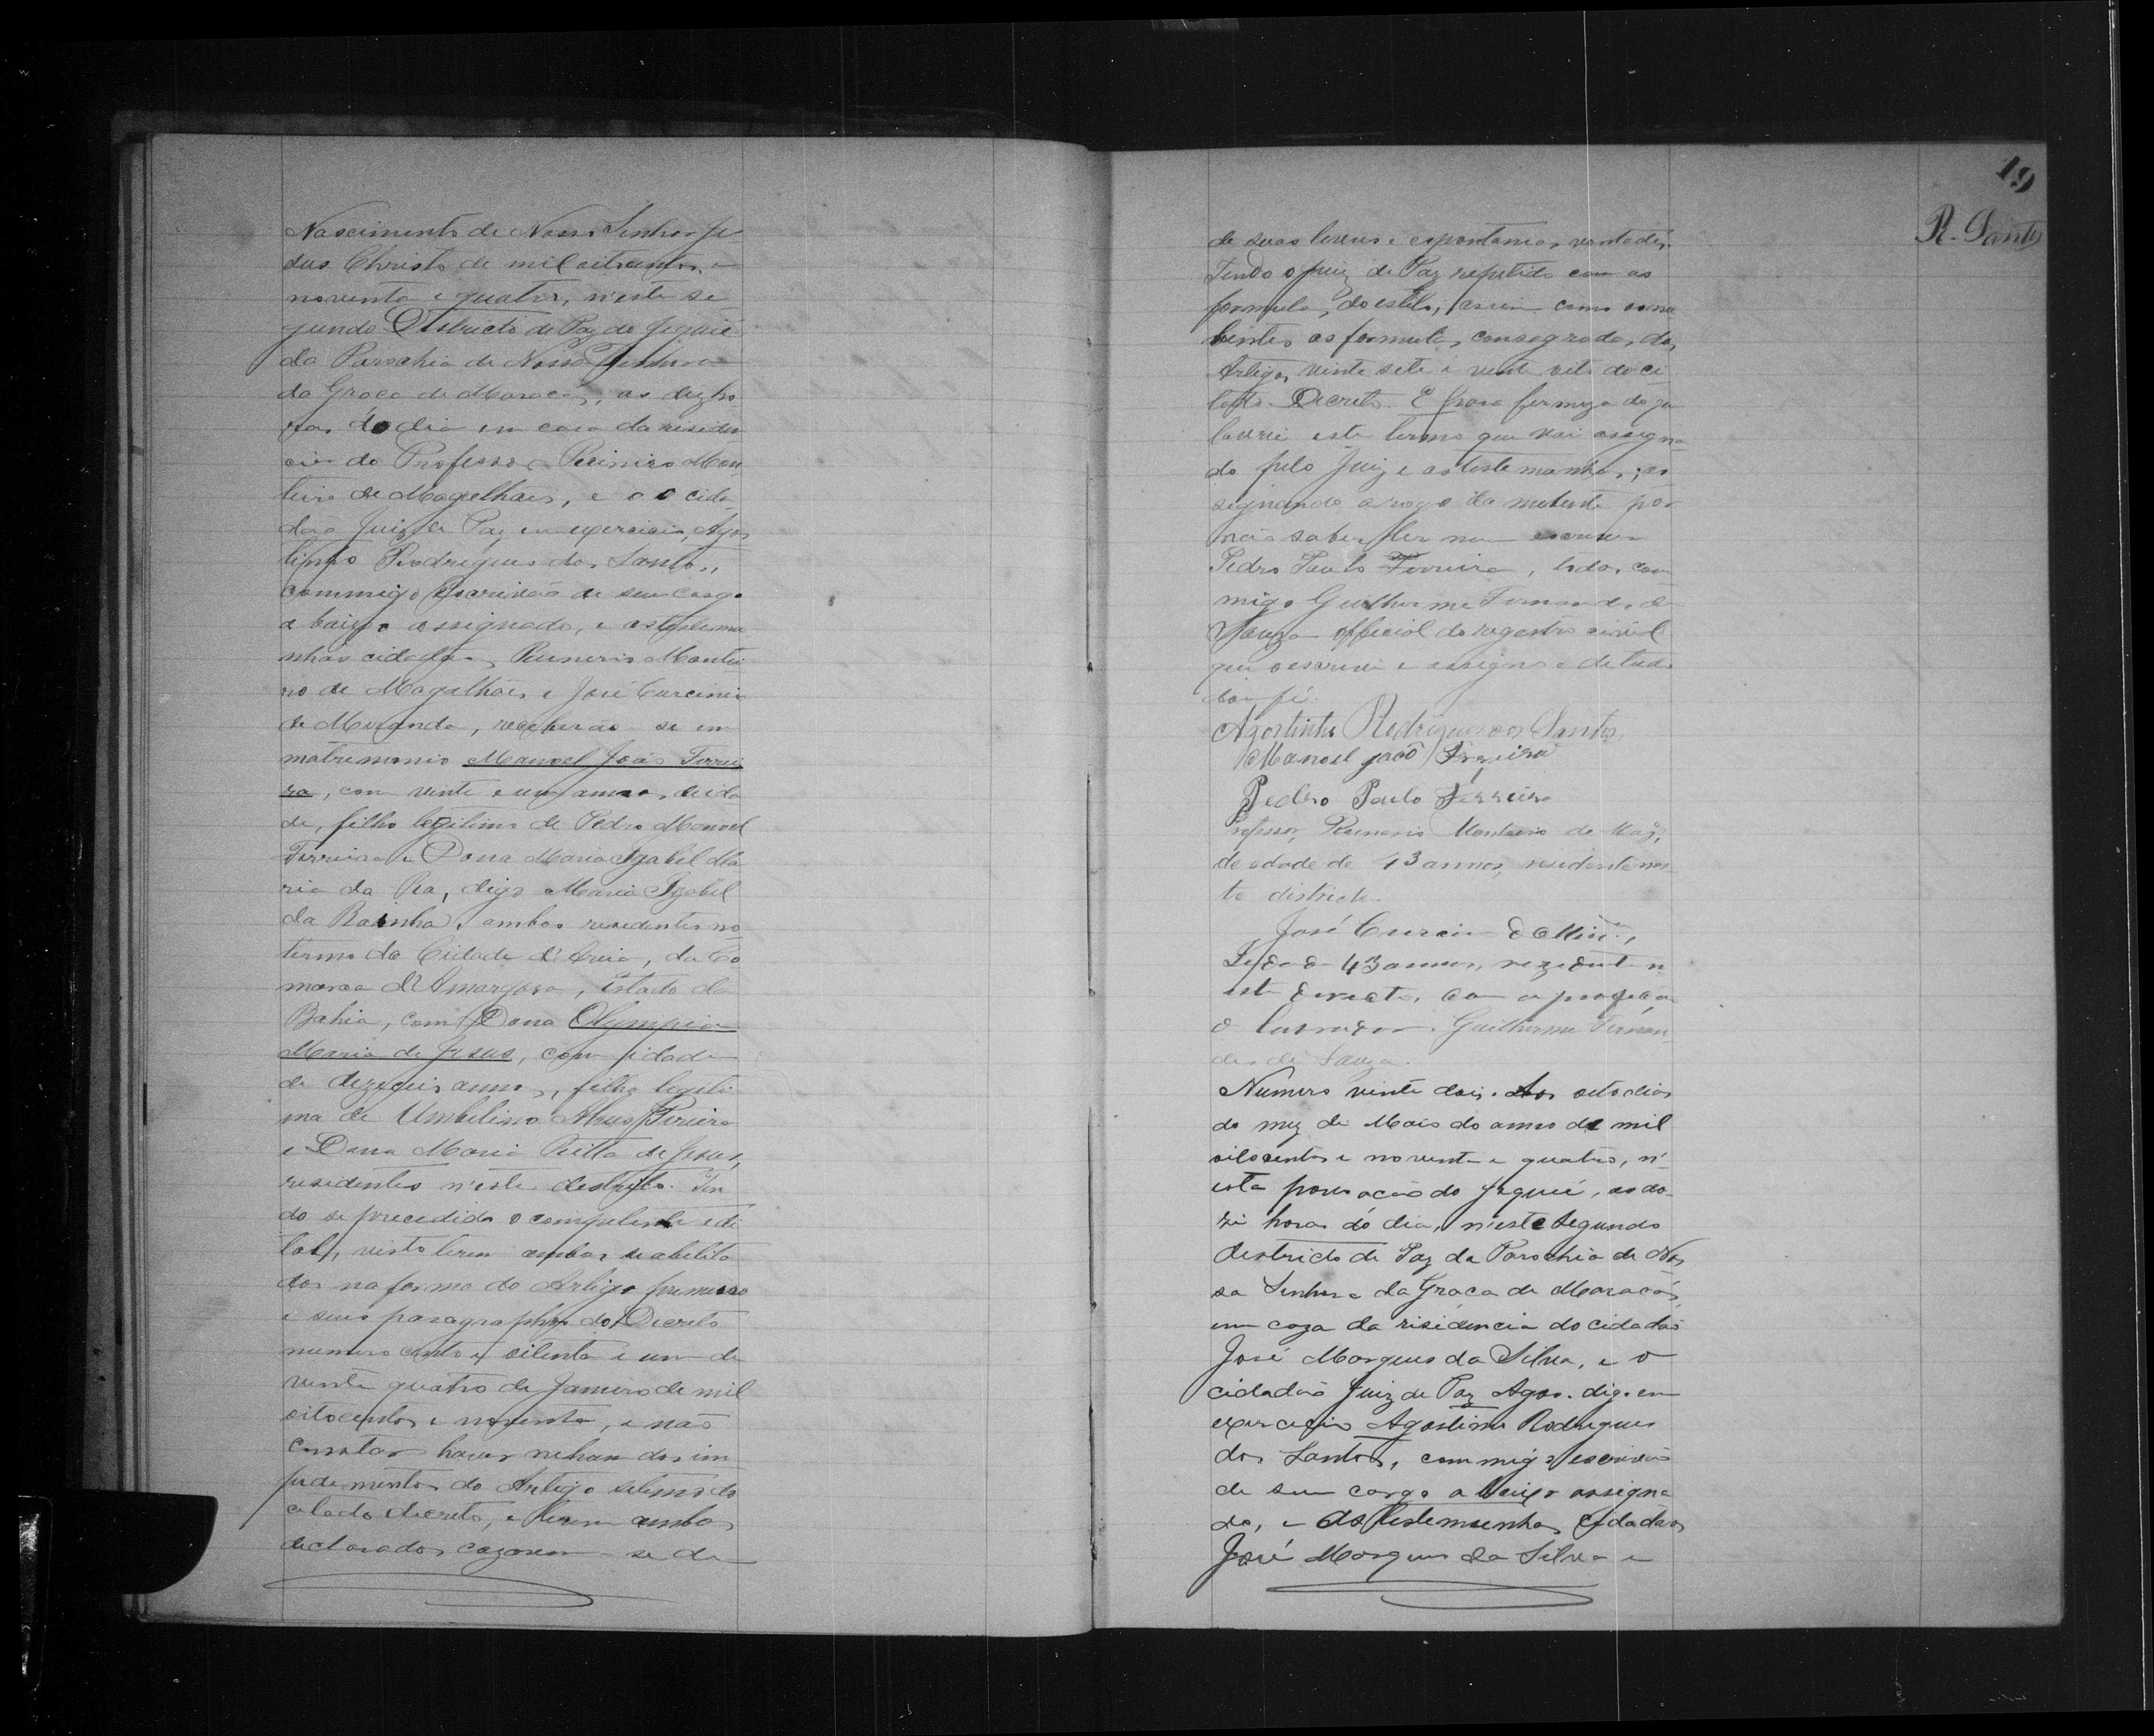 Nascimento de Nosso Senhor Je
sus Christo de mil oitocentos e
noventa e quatro, n'este se
gundo Districto de Paz do Jequié
da Parochia de Nossa Senhora
da Graça de Maracás, as dez ho
ras do dia em casa da residen
cia do Professor Mon
teiro de Magalhães, e o cida
dão Juiz de Paz em exercicio, Agos
tinho Rodrigues dos Santos,
commigo Escrivão de seu cargo
a baixo assignado, e as testemu
nhas cidadãos Montei
ro de Magalhães e José Curcino
de Miranda, receberão se em
matrimonio Manoel João Ferrei
ra, com vinte e um annos de ida
de, filho legitimo de Pedro Manoel
Ferreira e Dona Maria Izabel Ma
ria da Rea, digo Maria Izabel
da Rainha, ambos residentes no
termo da Cidade d'Areia, da Co
marca d'Amargosa, Estado da
Bahia, com Dona Olympia
Maria de Jesus, com idade
de dezeseis annos, filha legiti
ma de Umbelino Pereira
e Dona Maria Ritta de Jesus,
residentes n'este destricto. Ten
do se precedido o competente edi
tal, visto terem ambos se abilita
dos na forma do Artigo primeiro
e seus paragraphos do Decreto
numero cento e oitenta e um de
vinte quatro de Janeiro de mil
oitocentos e noventa, e não
constar haver nehum dos im
pedimentos do Artigo setimo do
citado decreto, e terem ambos
declarados cazarem se de
19
R. Santos
de suas livres e espontanias vontades.
Tendo o juiz de Paz repetido com as
formula, do estilo, assim como os nu
bentes as formula, consagrada, do,
Artigo, vinte sete e vinte oito do ci
tado Decreto. E para firmeza do que
lavrei este termo que vai assigna
do pelo Juiz e as testemunhas, as
signando a rogo da por
não saber ler nem escrever
Pedro Paulo Ferreira, todos com
migo Guilherme Fernandes de
Souza official do registro civil
que o escrevi e assigno e de tudo
dou fé.
Agostinho Rodrigues dos Santos
Manoel João Ferreira
Pedro Paulo Ferreira
Professor, Monteiro de Mag.,
de edade de 43 annos, residente nes
te districto.
José Curcino de Mir.,
de 43 annos, rezidente n
este com a profição
d lavrador. Guilherme Fernan
des de Souza.
Numero vinte dois. Aos oito dias
do mez de Maio do anno de mil
oitocentos e noventa e quatro, n'
esta povoação do Jequié, as do
ze horas do dia, n'este Segundo
destricto de Paz da Parochia de Nos
sa Senhora da Graça de Maracás,
em caza da residencia do cidadão
José Marques da Silva, e o
cidadão Juiz de Paz Agos. digo em
exercicio Agostinho Rodrigues
dos Santos, commigo escrivão
de seu cargo a baixo assigna
do, e as testemunhas cidadãos
José Marques da Silva e